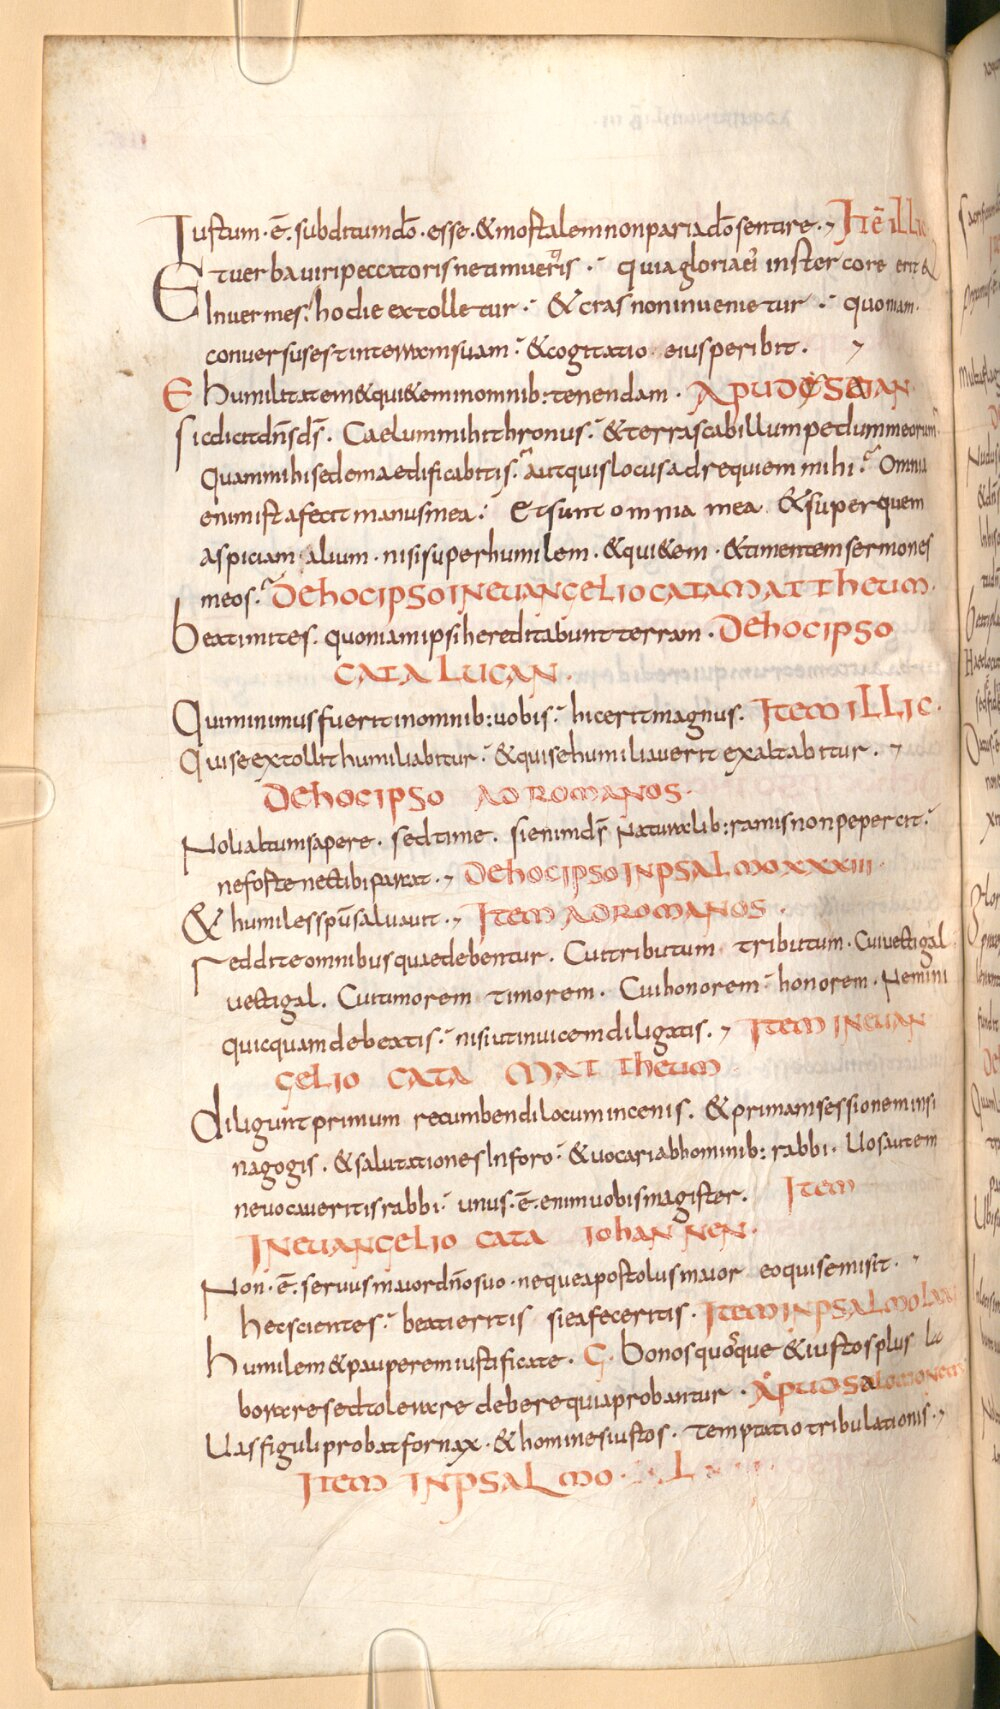 Iustum · ē · subditum dō · esse · & mortalem non paria dō sentire · Itē illic
Et verba viri peccatoris ne timueritis · quia gloria ei in stercore erit &
In vermes · hodie extolletur · & cras non invenietur · quoniam
conversus est in terram suam · & cogitatio eius peribit ·
E humilitatem & qui&em in omnib: tenendam · APUD ESAIAN
Sic dicit dn̄s ds̄ · Caelum mihi thronus · & terra scabillum pedum meorum
Quam mihi sedem aedificabitis · aut quis locus ad requiem mihi · Omnia
enim ista fecit manus mea · Et sunt omnia mea & super quem
aspiciam alium · nisi super humilem · & qui&em · & timentem sermones
meos · DE HOC IPSO IN EUANGELIO CATA MATTHEUM ·
beati mites · quoniam ipsi hereditabunt terram · DE HOC IPSO
CATA LUCAN ·
Qui minimus fuerit in omnib: uobis · hic erit magnus · ITEM ILLIC ·
Qui se extollit humiliabitur · & qui se humiliaverit exaltabitur ·
DE HOC IPSO AD ROMANOS ·
Noli altum sapere · sed time · si enim ds̄ naturalib: ramis non pepercit ·
ne forte nec tibi parcat · DE HOC IPSO IN PSALMO XXXIII ·
& humiles spū salvavit · ITEM AD ROMANOS ·
reddite omnibus quae debentur · Cui tributum tributum · Cui vectigal
vectigal · Cui timorem timorem · Cui honorem honorem · Nemini
quicquam debeatis · nisi ut invicem diligatis · ITEM IN EUAN
GELIO CATA MATTHEUM
diligunt primum recumbendi locum in cenis · & primam sessionem in si
nagogis · & salutationes In foro · & vocari ab hominib: rabbi · Uos autem
ne vocaveritis rabbi · unus · ē · enim uobis magister · ITEM
IN EUANGELIO CATA IOHANNEN ·
Non · ē · servus maior dn̄o suo · neque apostolus maior eo qui se misit ·
hec scientes · beati eritis si ea feceritis · ITEM IN PSALMO
humilem & pauperem iustificate · G · bonos quoque & iustos plus la
borare sed tolerare debere quia probantur · APUD SALOMONEM
Uas figuli probat fornax · & homines iustos · temptatio tribulationis ·
ITEM IN PSALMO · L